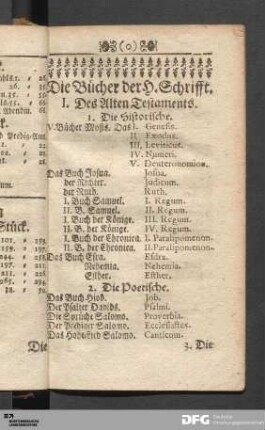 (o)
Die Bücher der H. Schrifft.
I. Des Alten Testaments.
1. Die Historische.
V. Bücher Mosis. Das I. Genesis.
II. Exodus.
III. Leviticus.
IV. Numeri.
V. Deuteronomion.
Das Buch Josua. Josua.
der Richter. Judicum.
der Ruth. Ruth.
I. Buch Samuel. I. Regum.
II. B. Samuel. II. Regum.
I. Buch der Könige. III. Regum.
II. B. der Könige. IV. Regum.
I. Buch der Chronica. I. Paralipomenon.
II. B. der Chronica. II. Paralipomenon.
Das Buch Esra. Esdra.
Nehemia. Nehemia.
Esther. Esther.
2. Die Poetische.
Das Buch Hiob. Job.
Der Psalter Davids. Psalmi.
Die Sprüche Salomo. Proverbia.
Der Prediger Salomo. Ecclesiastes.
Das Hohelied Salomo. Canticum.
3. Die
Stück.
Die
DFG